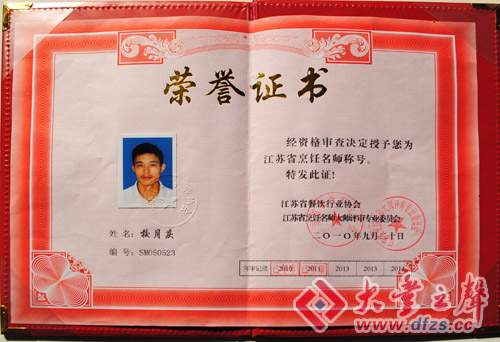 荣誉证书
姓名：
编号：SM050523
经资格审查决定授予您为
江苏省烹饪名师称号。
特发此证！
江苏省餐饮行业协会
江苏省烹饪名师大师评审专业委员会
二〇一〇年九月二十日
年审记录 2010 2011 2013 2013 2014
www.dfzs.cc